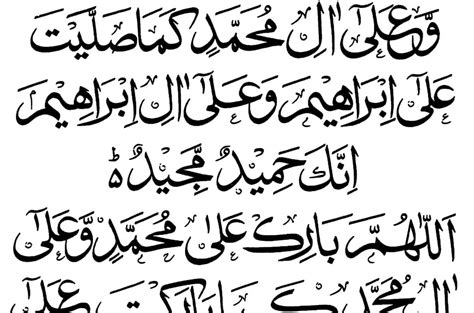 وَّعَلٰٓى اٰلِ مُحَمَّدٍ كَمَا صَلَّيْتَ
عَلٰٓى اِبْرَاهِيْمَ وَعَلٰٓى اٰلِ اِبْرَاهِيْمَ
اِنَّكَ حَمِيْدٌ مَّجِيْدٌ ؕ
اَللّٰهُمَّ بَارِكْ عَلٰى مُحَمَّدٍ وَّعَلٰٓى
اٰلِ مُحَمَّدٍ كَمَا بَارَكْتَ عَلٰٓى